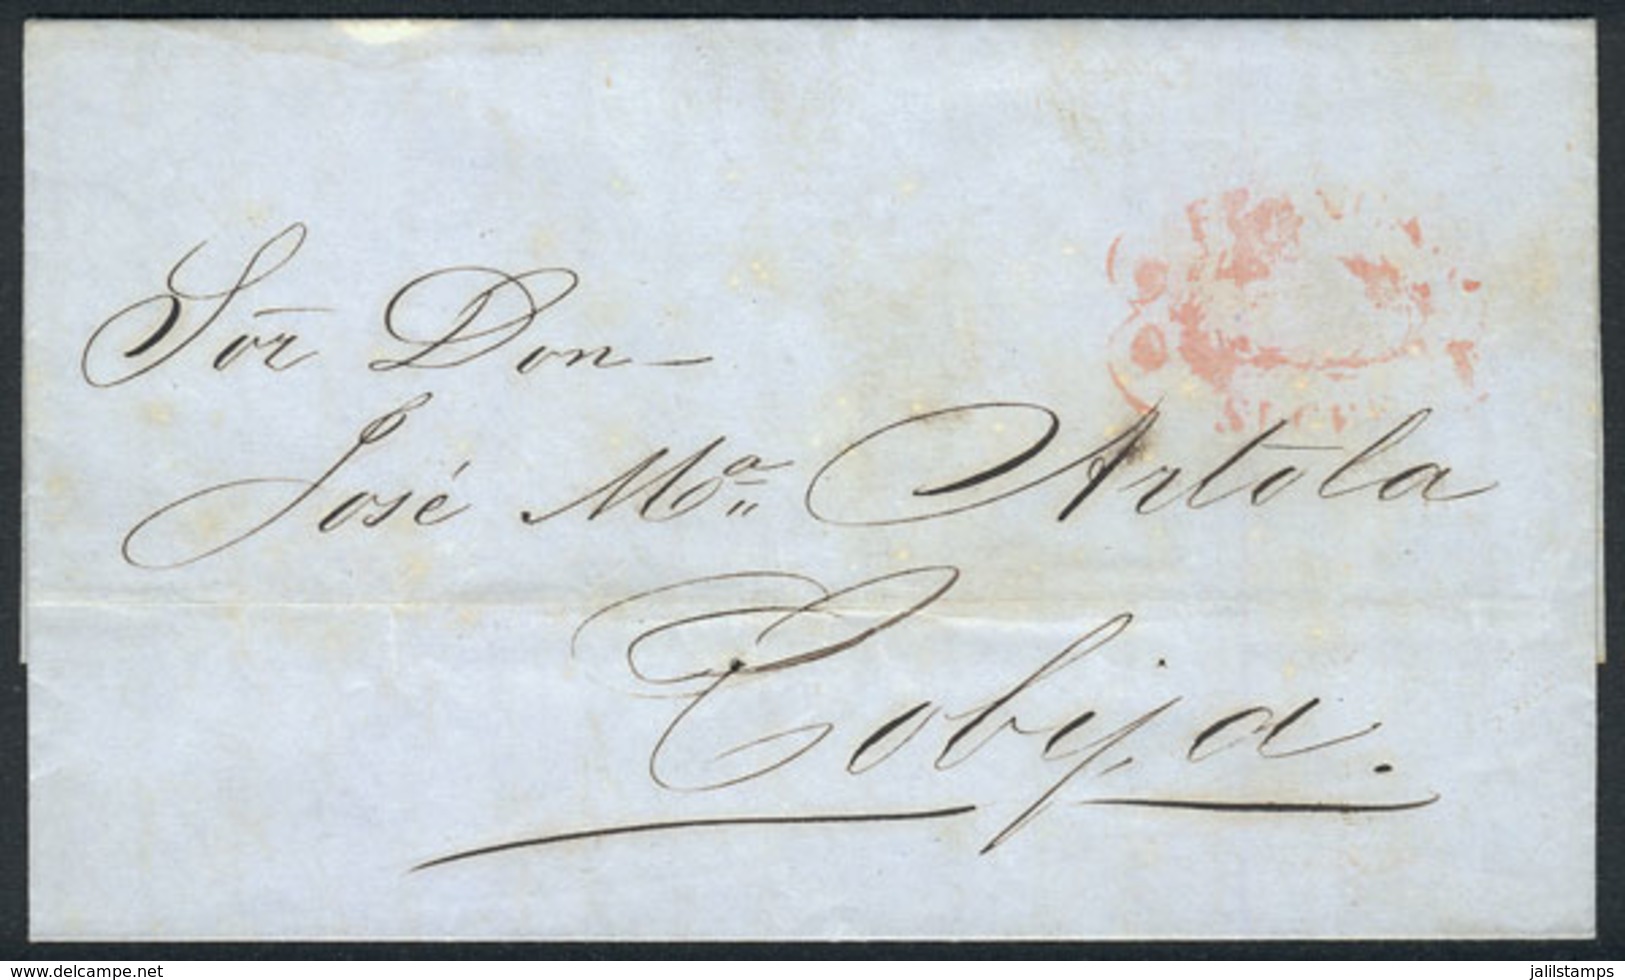 Sōr Don –
José Mª Artola
Cobija.
www.delcampe.net
jalilstamps